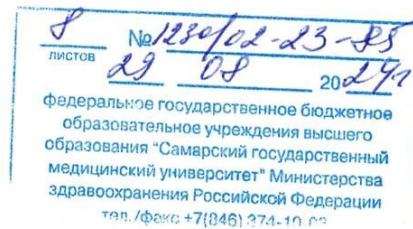 8 №1230/02-23-85
листов
29 08 2024г
федеральное государственное бюджетное
образовательное учреждения высшего
образования "Самарский государственный
медицинский университет" Министерства
здравоохранения Российской Федерации
тел. /факс +7(846) 374-10-03